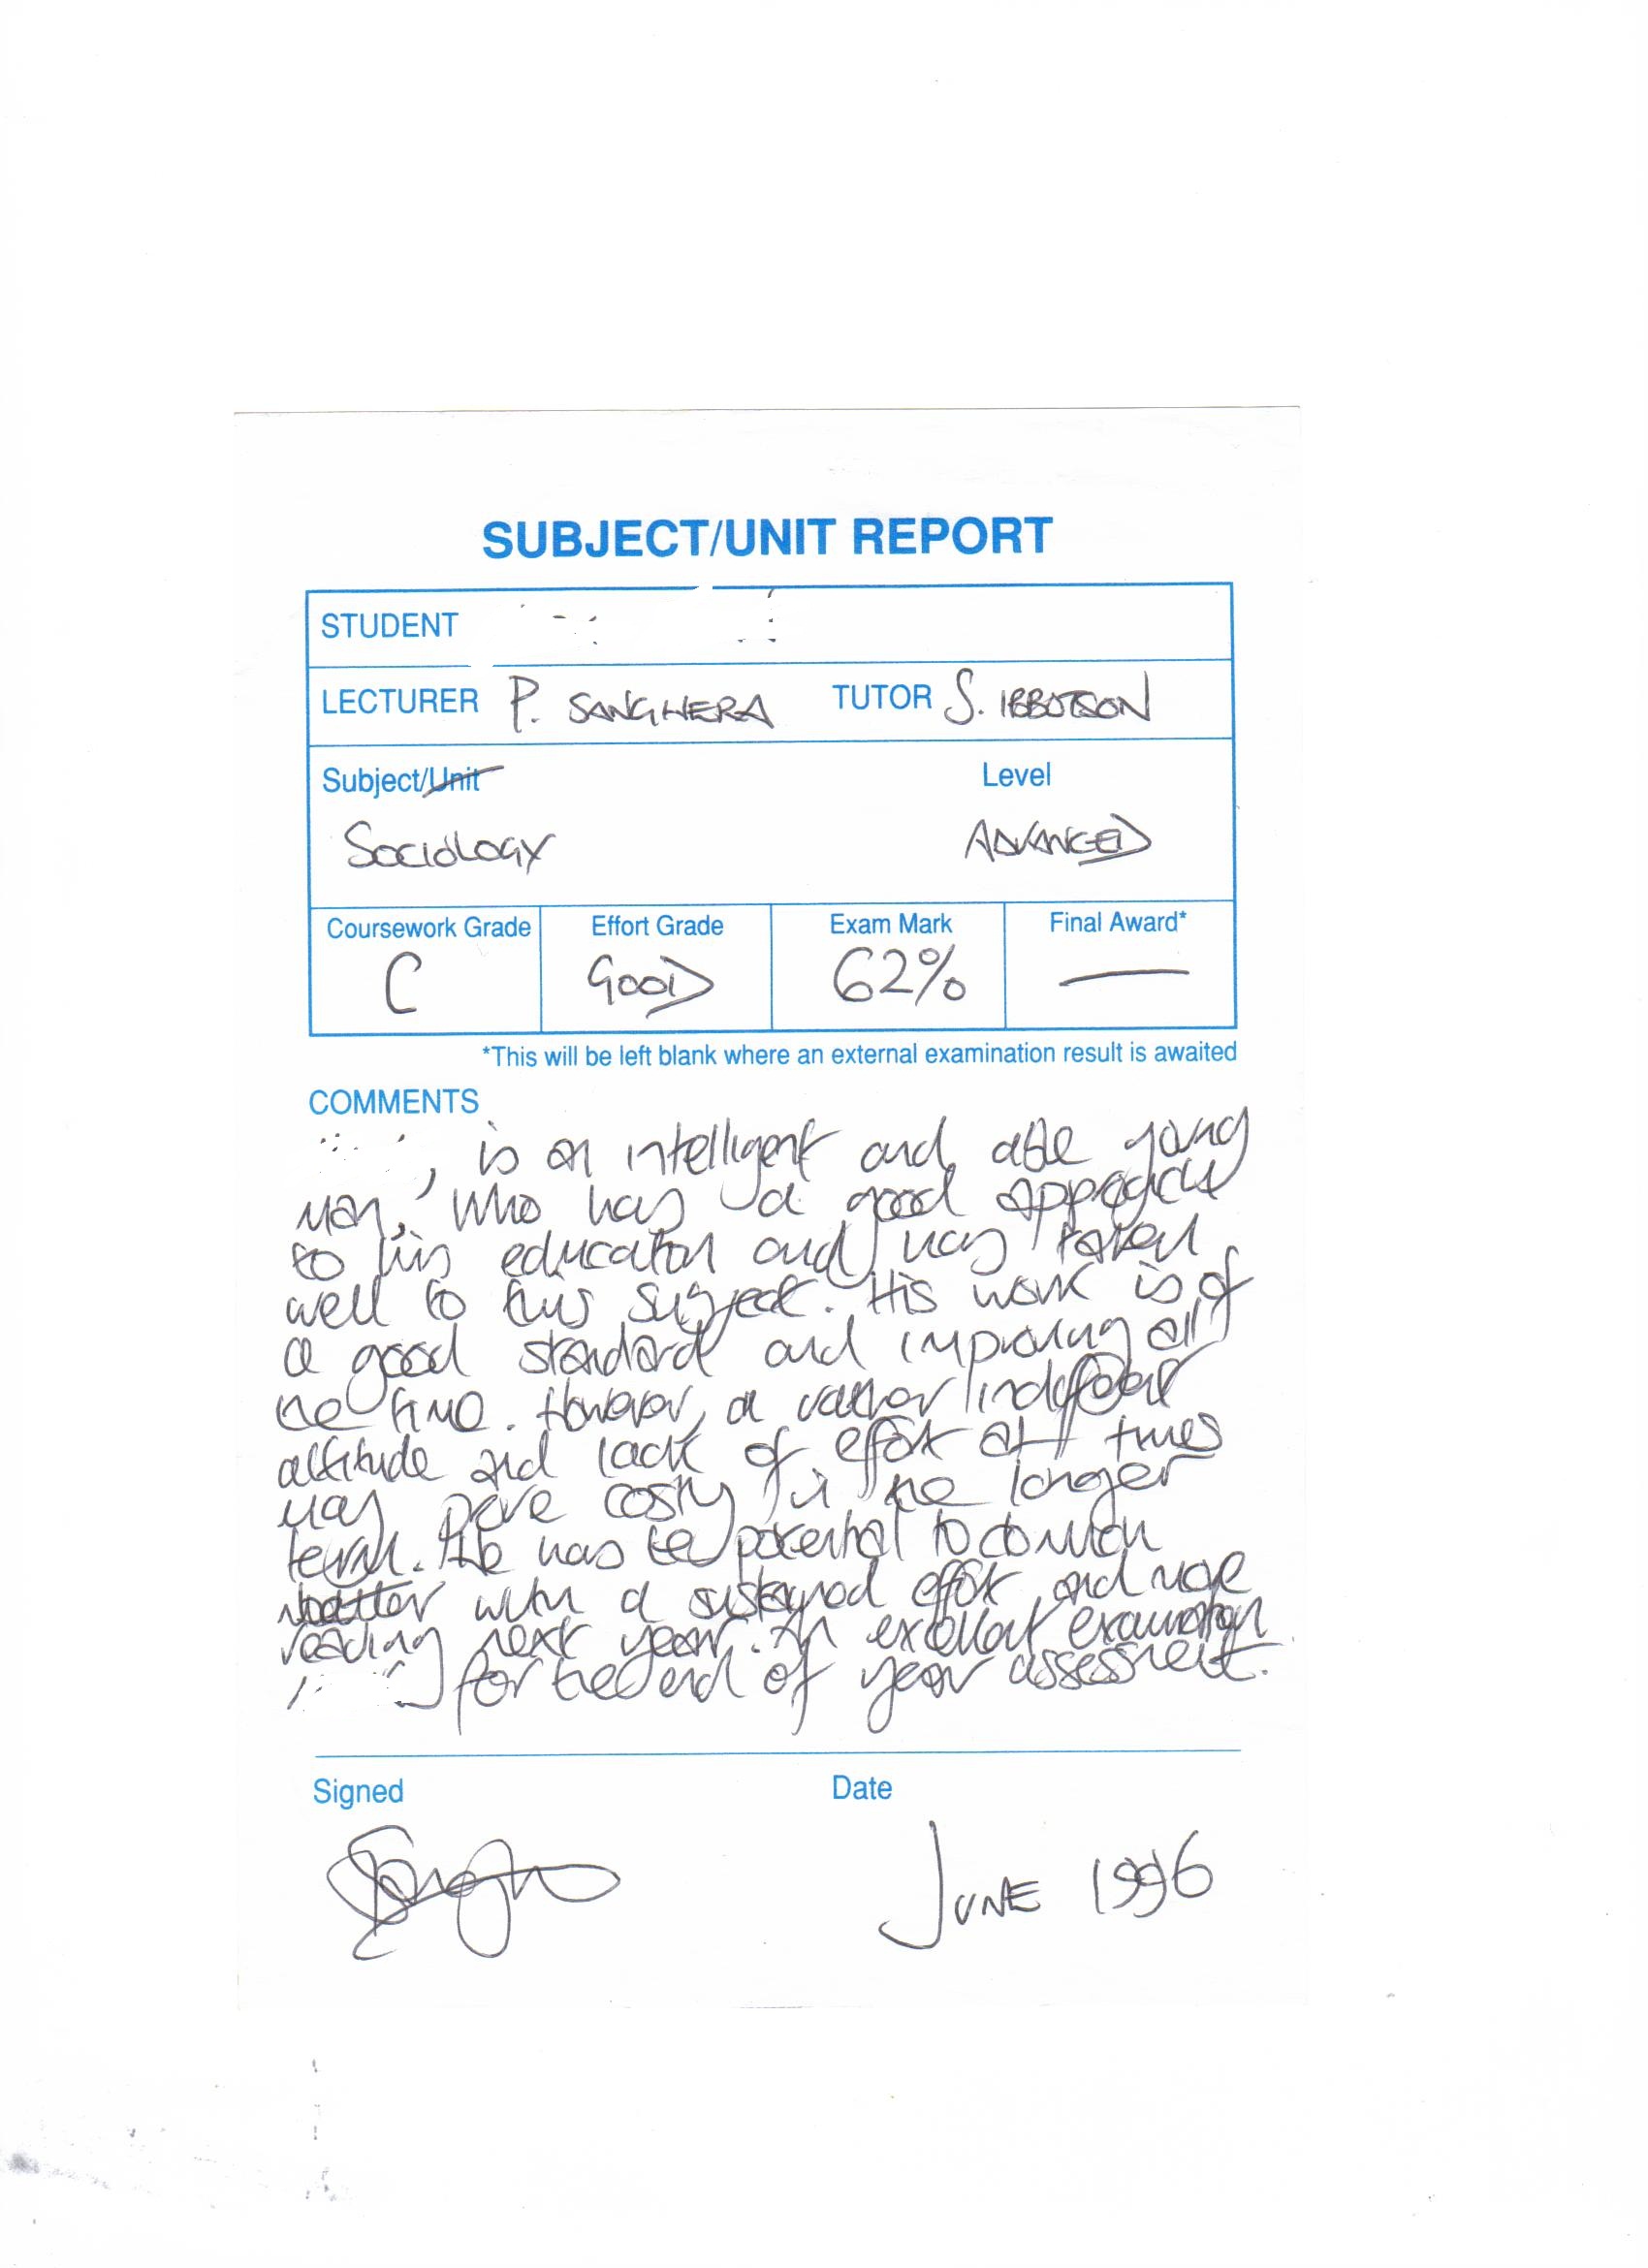 SUBJECT/UNIT REPORT
STUDENT
LECTURER P. SANGHERA TUTOR S. IBBOTSON
Subject/Unit Level
SOCIOLOGY ADVANCED
Coursework Grade Effort Grade Exam Mark Final Award*
C GOOD 62% —
*This will be left blank where an external examination result is awaited
COMMENTS
, is an intelligent and able young
man, who has a good approach
to his education and has taken
well to this subject. His work is of
a good standard and improving all
the time. However, a rather indifferent
attitude and lack of effort at times
may prove costly in the longer
term. He has the potential to do much
better with a sustained effort and more
reading next year. An excellent examination
for the end of year assessment.
Signed Date
JUNE 1996